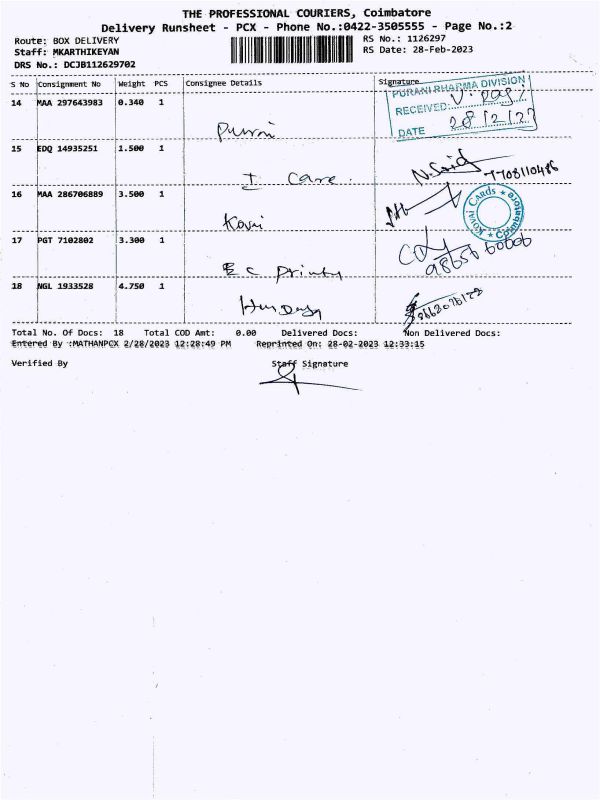 THE PROFESSIONAL COURIERS, Coimbatore
Delivery Runsheet - PCX - Phone No.:0422-3505555 - Page No.:2
Route: BOX DELIVERY
RS No.: 1126297
Staff: MKARTHIKEYAN
RS Date: 28-Feb-2023
DRS No.: DCJB112629702
S No Consignment No Weight PCS Consignee Details Signature
PURANI PHARMA DIVISION
RECEIVED
DATE 28/2/23
14 MAA 297643983 0.340 1
15 EDQ 14935251 1.500 1
I Care.
7708110486
16 MAA 286706889 3.500 1
Kovai
Kovai Cards * Coimbatore *
17 PGT 7102802 3.300 1
E C Printy
18 NGL 1933528 4.750 1
Total No. Of Docs: 18 Total COD Amt: 0.00 Delivered Docs: Non Delivered Docs:
Entered By :MATHANPCX 2/28/2023 12:28:49 PM Reprinted On: 28-02-2023 12:33:15
Verified By Staff Signature